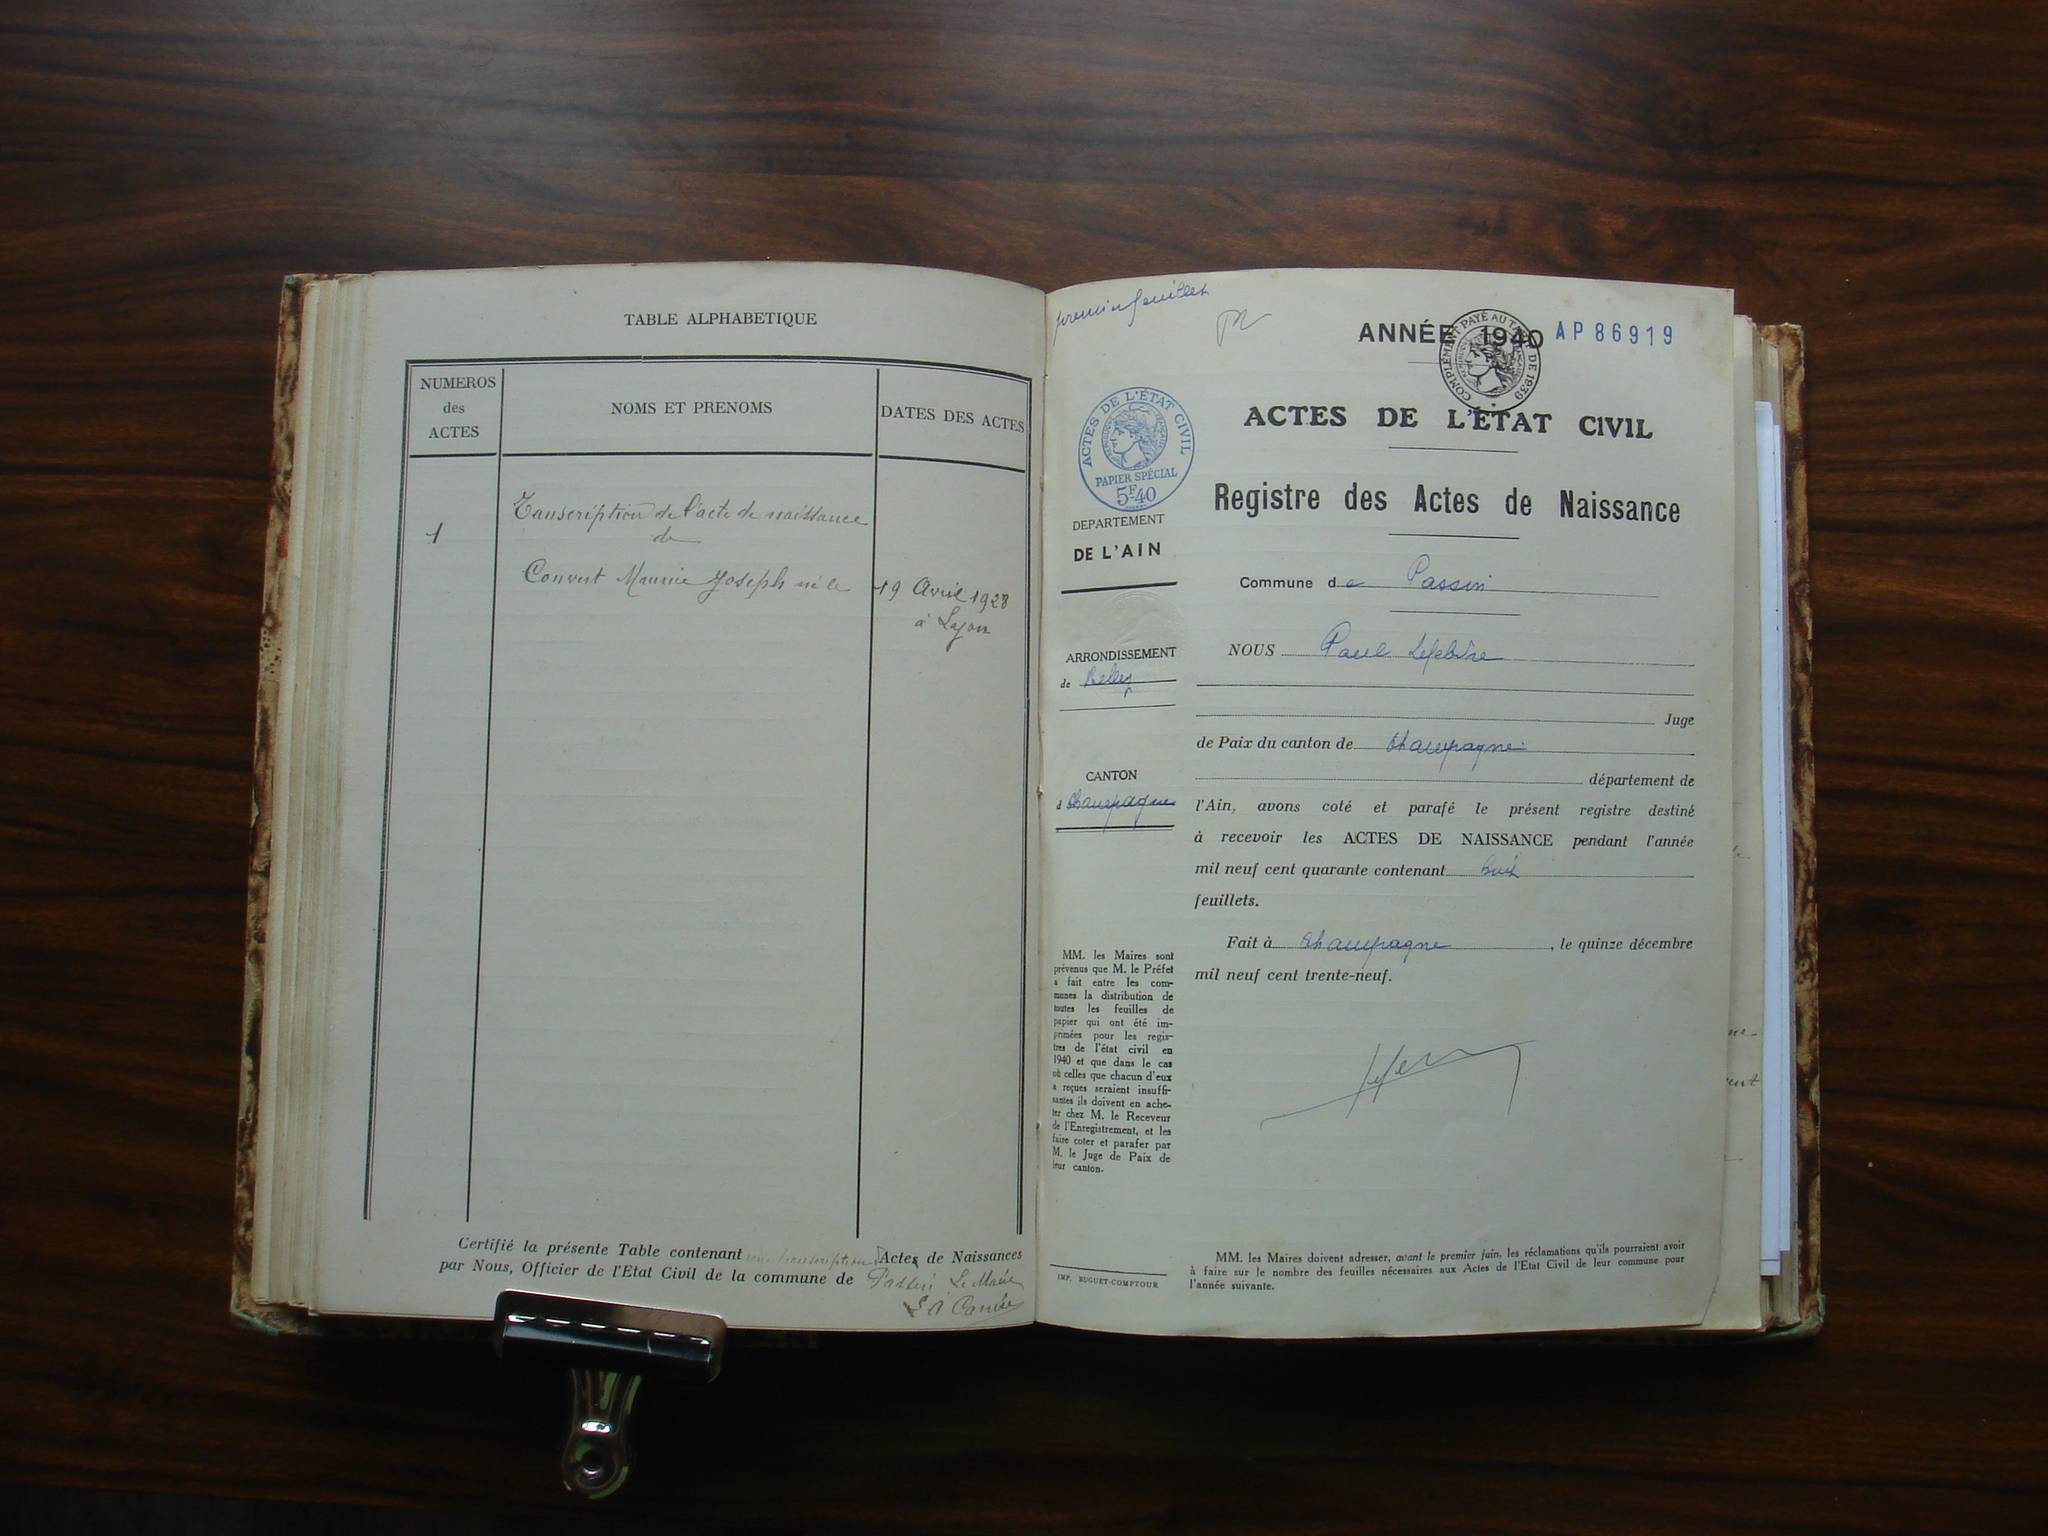 TABLE ALPHABETIQUE
NUMEROS
des
ACTES
NOMS ET PRENOMS
DATES DES ACTES
1
Transcription de l'acte de naissance
de
Convert Maurice Joseph né le
19 Avril 1928
à Lyon
Certifié la présente Table contenant une transcription d'Actes de Naissances
par Nous, Officier de l'Etat Civil de la commune de Passin Le Maire
premier feuillet
ANNÉE 1940 AP 86919
COMPLÉMENT PAYÉ AU TARIF DE 1939
ACTES DE L'ÉTAT CIVIL
PAPIER SPÉCIAL
5F40
ACTES DE L'ÉTAT CIVIL
Registre des Actes de Naissance
DEPARTEMENT
DE L'AIN
Commune de Passin
ARRONDISSEMENT
de Belley
NOUS Paul Lefebvre
Juge
de Paix du canton de Champagne
CANTON
d Champagne
département de
l'Ain, avons coté et parafé le présent registre destiné
à recevoir les ACTES DE NAISSANCE pendant l'année
mil neuf cent quarante contenant huit
feuillets.
Fait à Champagne, le quinze décembre
mil neuf cent trente-neuf.
MM. les Maires sont
prévenus que M. le Préfet
a fait entre les com-
munes la distribution de
toutes les feuilles de
papier qui ont été im-
primées pour les regis-
tres de l'état civil en
1940 et que dans le cas
où celles que chacun d'eux
a reçues seraient insuffi-
santes ils doivent en ache-
ter chez M. le Receveur
de l'Enregistrement, et les
faire coter et parafer par
M. le Juge de Paix de
leur canton.
IMP. BUGUET-COMPTOUR
MM. les Maires doivent adresser, avant le premier juin, les réclamations qu'ils pourraient avoir
à faire sur le nombre des feuilles nécessaires aux Actes de l'Etat Civil de leur commune pour
l'année suivante.